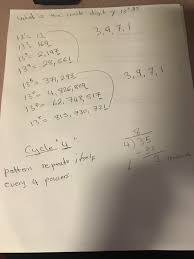 What is the units digit of 13
13¹ = 13
13² = 169
13³ = 2,197
13⁴ = 28,561
3, 9, 7, 1
13⁵ = 371,293
13⁶ = 4,826,809
13⁷ = 62,748,517
13⁸ = 815,730,721
3, 9, 7, 1
Cycle "4"
pattern repeats itself
every 4 powers
8
4)35
3